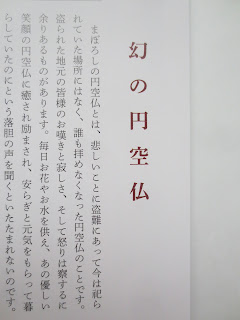 幻の円空仏
まぼろしの円空仏とは、悲しいことに盗難にあって今は祀ら
れていた場所にはなく、誰も拝めなくなった円空仏のことです。
盗られた地元の皆様のお嘆きと寂しさ、そして怒りは察するに
余りあるものがあります。毎日お花やお水を供え、あの優しい
笑顔の円空仏に癒され励まされ、安らぎと元気をもらって暮
らしていたのにという落胆の声を聞くといたたまれないのです。